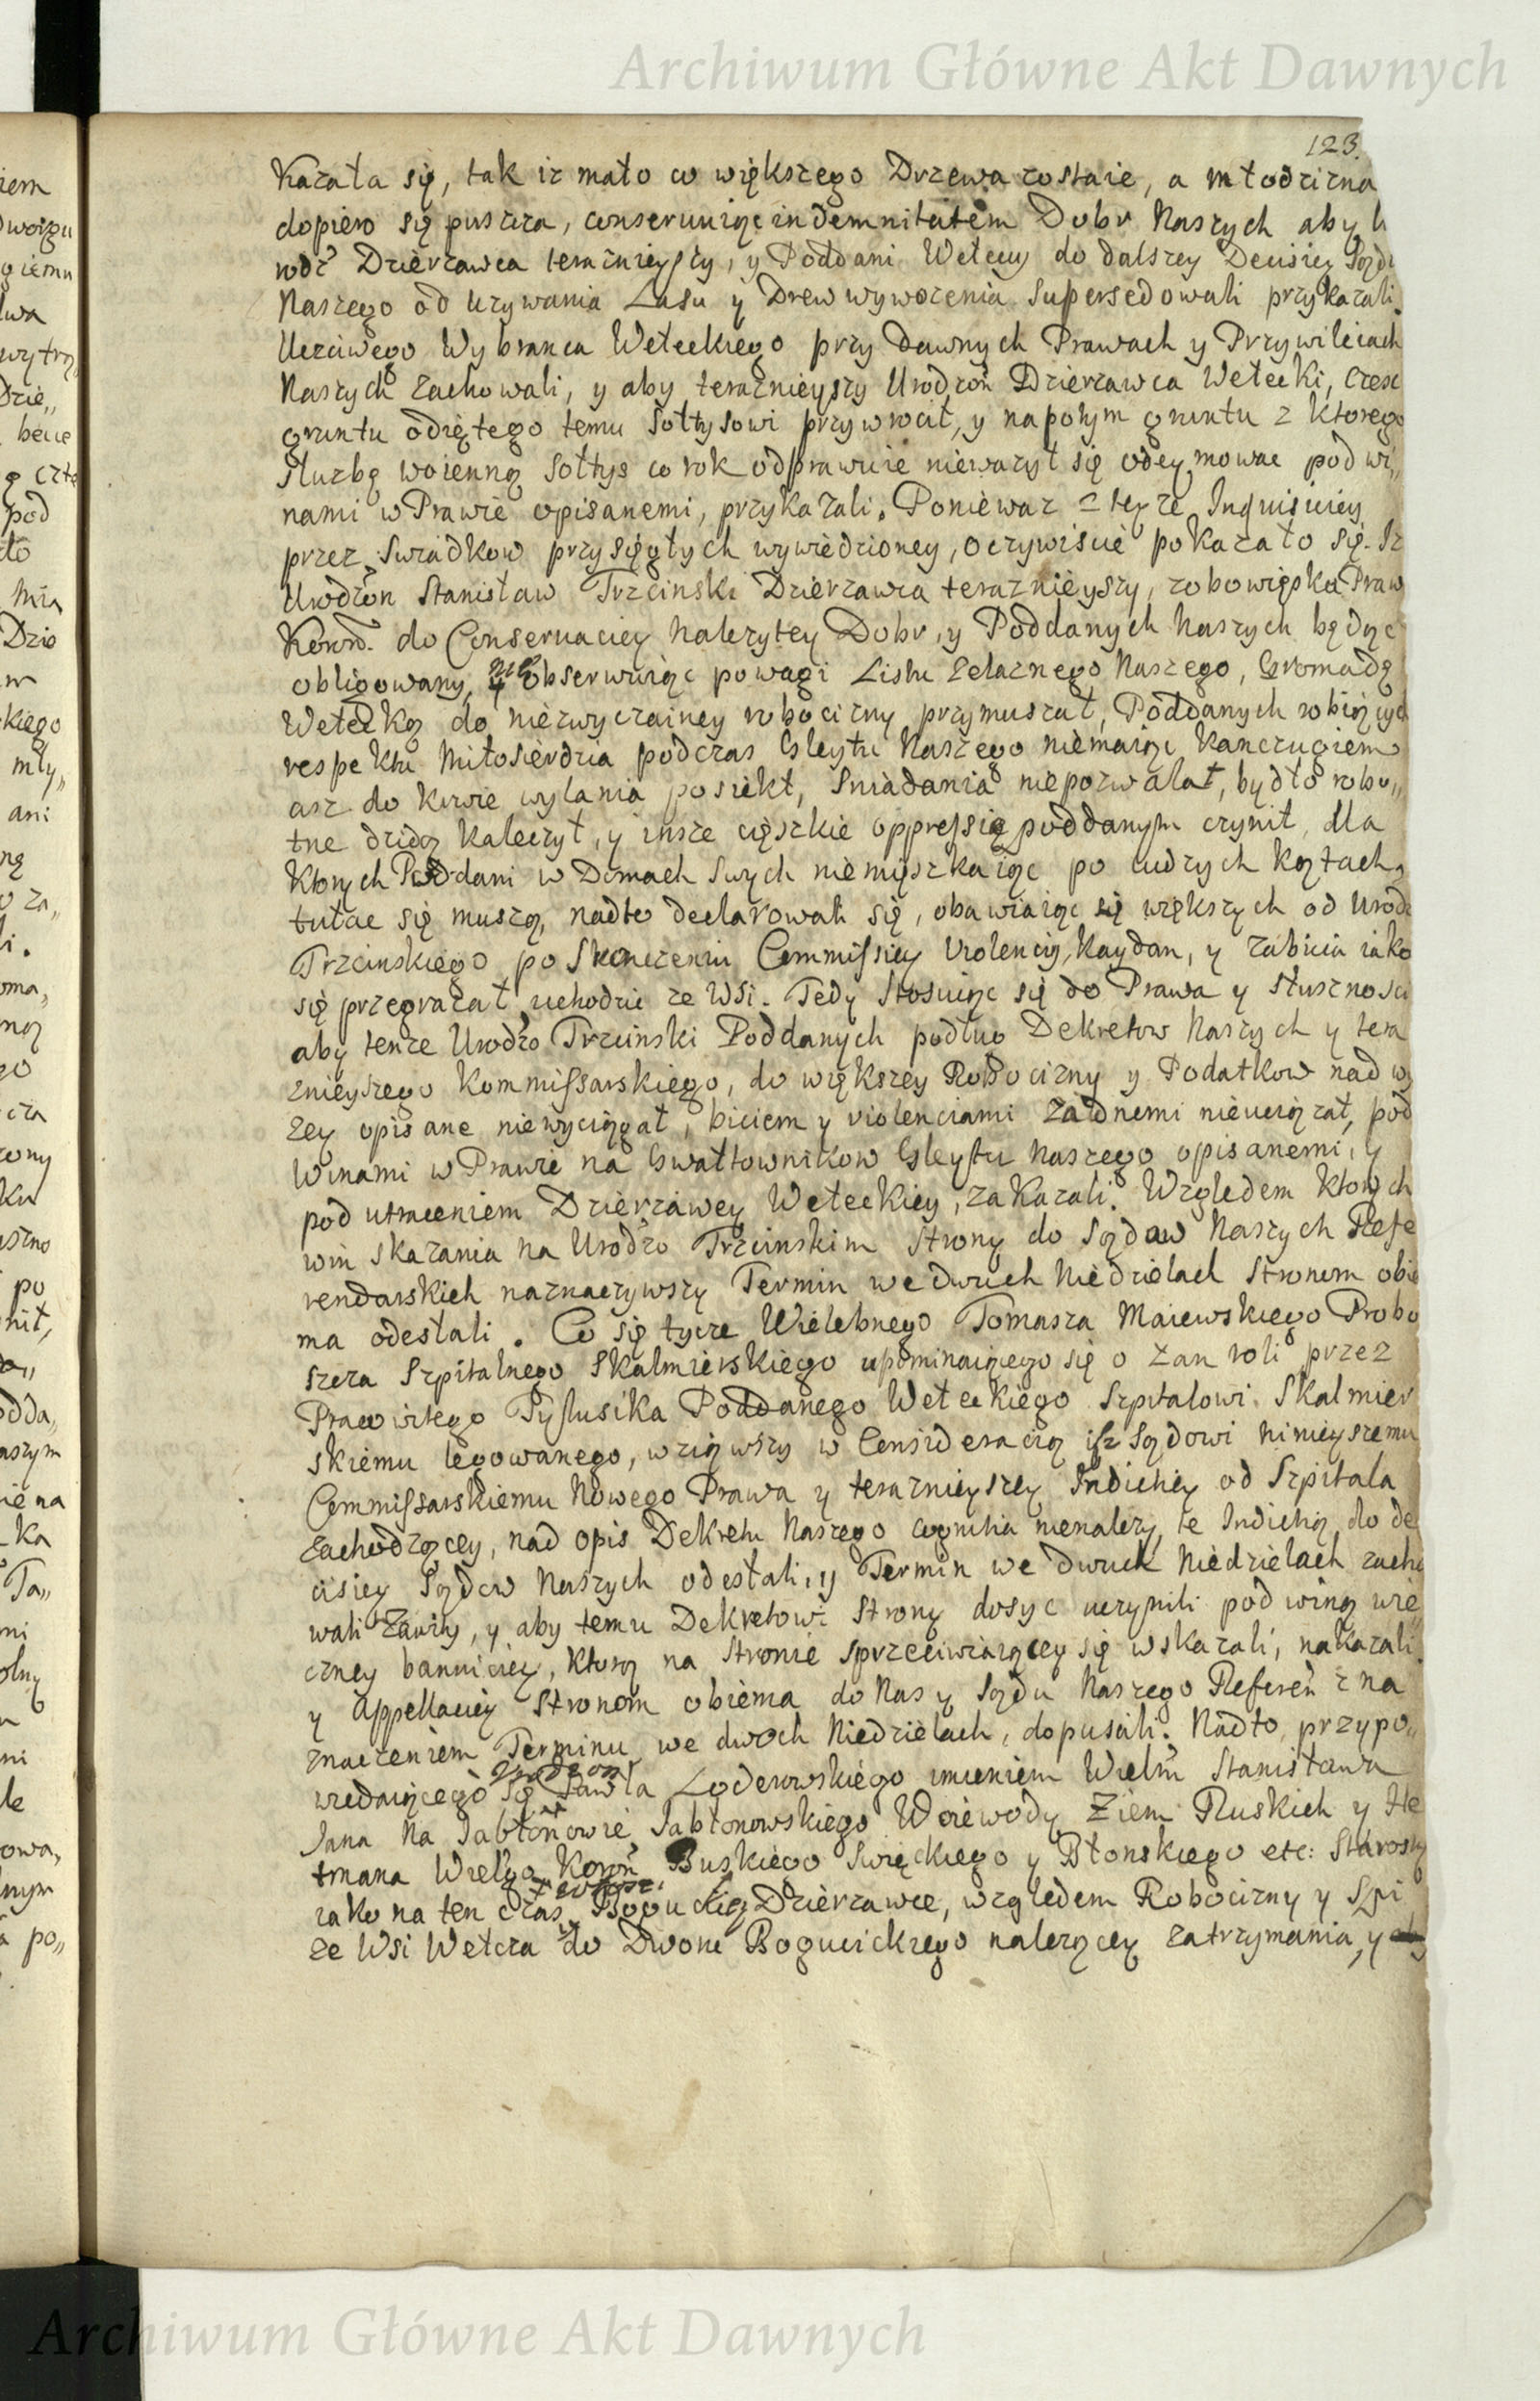 Archiwum Główne Akt Dawnych
123.
Kazała się, tak iz mało co większego Drzewa zostaie, a młodzizna
dopiero się puszcza, conseruuiąc indemnitatem Dobr Naszych aby U
rodź Dzierzawca teraznieyszy, y Poddani Wełeccy do dalszey Decisiey Sądu
Naszego od Uzywania Lasu y Drew wywozenia supersedowali przykazali.
Uczciwego Wybranca Wełeckiego przy dawnych Prawach y Przywileiach
Naszych zachowali, y aby teraznieyszy Urodzoń Dzierzawca Wełecki, częsc
gruntu odiętego temu Sołtysowi przywrocił, y napotym gruntu z ktorego
słuzbę woienną Sołtys co rok odprawuie niewazył się odeymowac pod wi„
nami w Prawie opisanemi, przykazali. Poniewaz z teyze Inquisiciey
przez Swiadkow przysięgłych wywiedzioney, oczywiscie pokazało się. Iz
Urodzoń Stanisław Trzcinski Dzierzawca teraznieyszy, z obowiąsku Praw
Koroń. do Conseruaciey nalezytey Dobr, y Poddanych Naszych będąc
obligowany, nie obserwuiąc powagi Listu zelaznego Naszego, Gromadę
Wełecką do niezwyczainey robocizny przymuszał, Poddanych robiących
respektu Miłosierdzia podczas Gleytu Naszego niemaiąc Kanczugiem
asz do krwie wylania posiekł, Sniadania niepozwalał, bydło robo„
tne dzidą kaleczył, y insze cięszkie oppressię poddanym czynił, dla
Ktorych Poddani w Domach Swych niemyszkaiąc po cudzych kątach
tułac się muszą, nadto declarowali się, obawiaiąc się większych od Urodz
Trzcinskiego po Skonczeniu Commissiey Violenciy, Kaydan, y zabicia iako
się przegrazał uchodzic ze Wsi. Tedy stosuiąc się do Prawa y słusznosci
aby tenze Urodzo Trzcinski Poddanych podług Dekretow Naszych y tera
znieyszego Kommissarskiego, do większey Robocizny y Podatkow nad wy
zey opisane niewyciągał, biciem y violenciami zadnemi nieuciązał, pod
Winami w Prawie na Gwałtownikow Gleytu Naszego opisanemi, y
pod utraceniem Dzierzawey Wełeckiey, zakazali. Względem Ktorych
win skazania na Urodzo Trzcinskim strony do Sądow Naszych Refe
rendarskich naznaczywszy Termin we dwuch Niedzielach stronom obie
ma odesłali. Co się tycze Wielebnego Tomasza Maiewskiego Probo
szcza Szpitalnego Skalmierskiego upominaiącego się o Łan roli przez
Pracowitego Poddanego Wełeckiego Szpitalowi Skalmier
skiemu legowanego, wziąwszy w Consideracią isz Sądowi ninieyszemu
Commissarskiemu Nowego Prawa y teraznieyszey Indictiey od Szpitala
zachodzącey, nad opis Dekretu Naszego cognitia nienalezy, te Indictią do de
cisiey Sądow Naszych odesłali, y Termin we dwuch Niedzielach zacho
wali Zawity, y aby temu Dekretowi strony dosyc uczynili pod winą wie
czney banniciey, Ktorą na stronie sprzeciwiaiącey się wskazali, nakazali.
y Appellaciey stronom obiema do Nas y Sądu Naszego Refereń z na
znaczeniem Terminu we dwoch Niedzielach, dopuscili. Nadto przypo„
wiedaiącego się Pawła Lgderowskiego imieniem Wielm̃ Stanisława
Jana na Jabłonowie Jabłonowskiego Woiewody Ziem Ruskich y He
tmana Wielgo Koroń Buskiego Swięckiego y Błonskiego etc: Starosty
iako na ten czas Dzierzawce, względem Robocizny y Spi
ze Wsi Wełcza do Dworu Bogucickiego nalezącey zatrzymania, y
Archiwum Główne Akt Dawnych